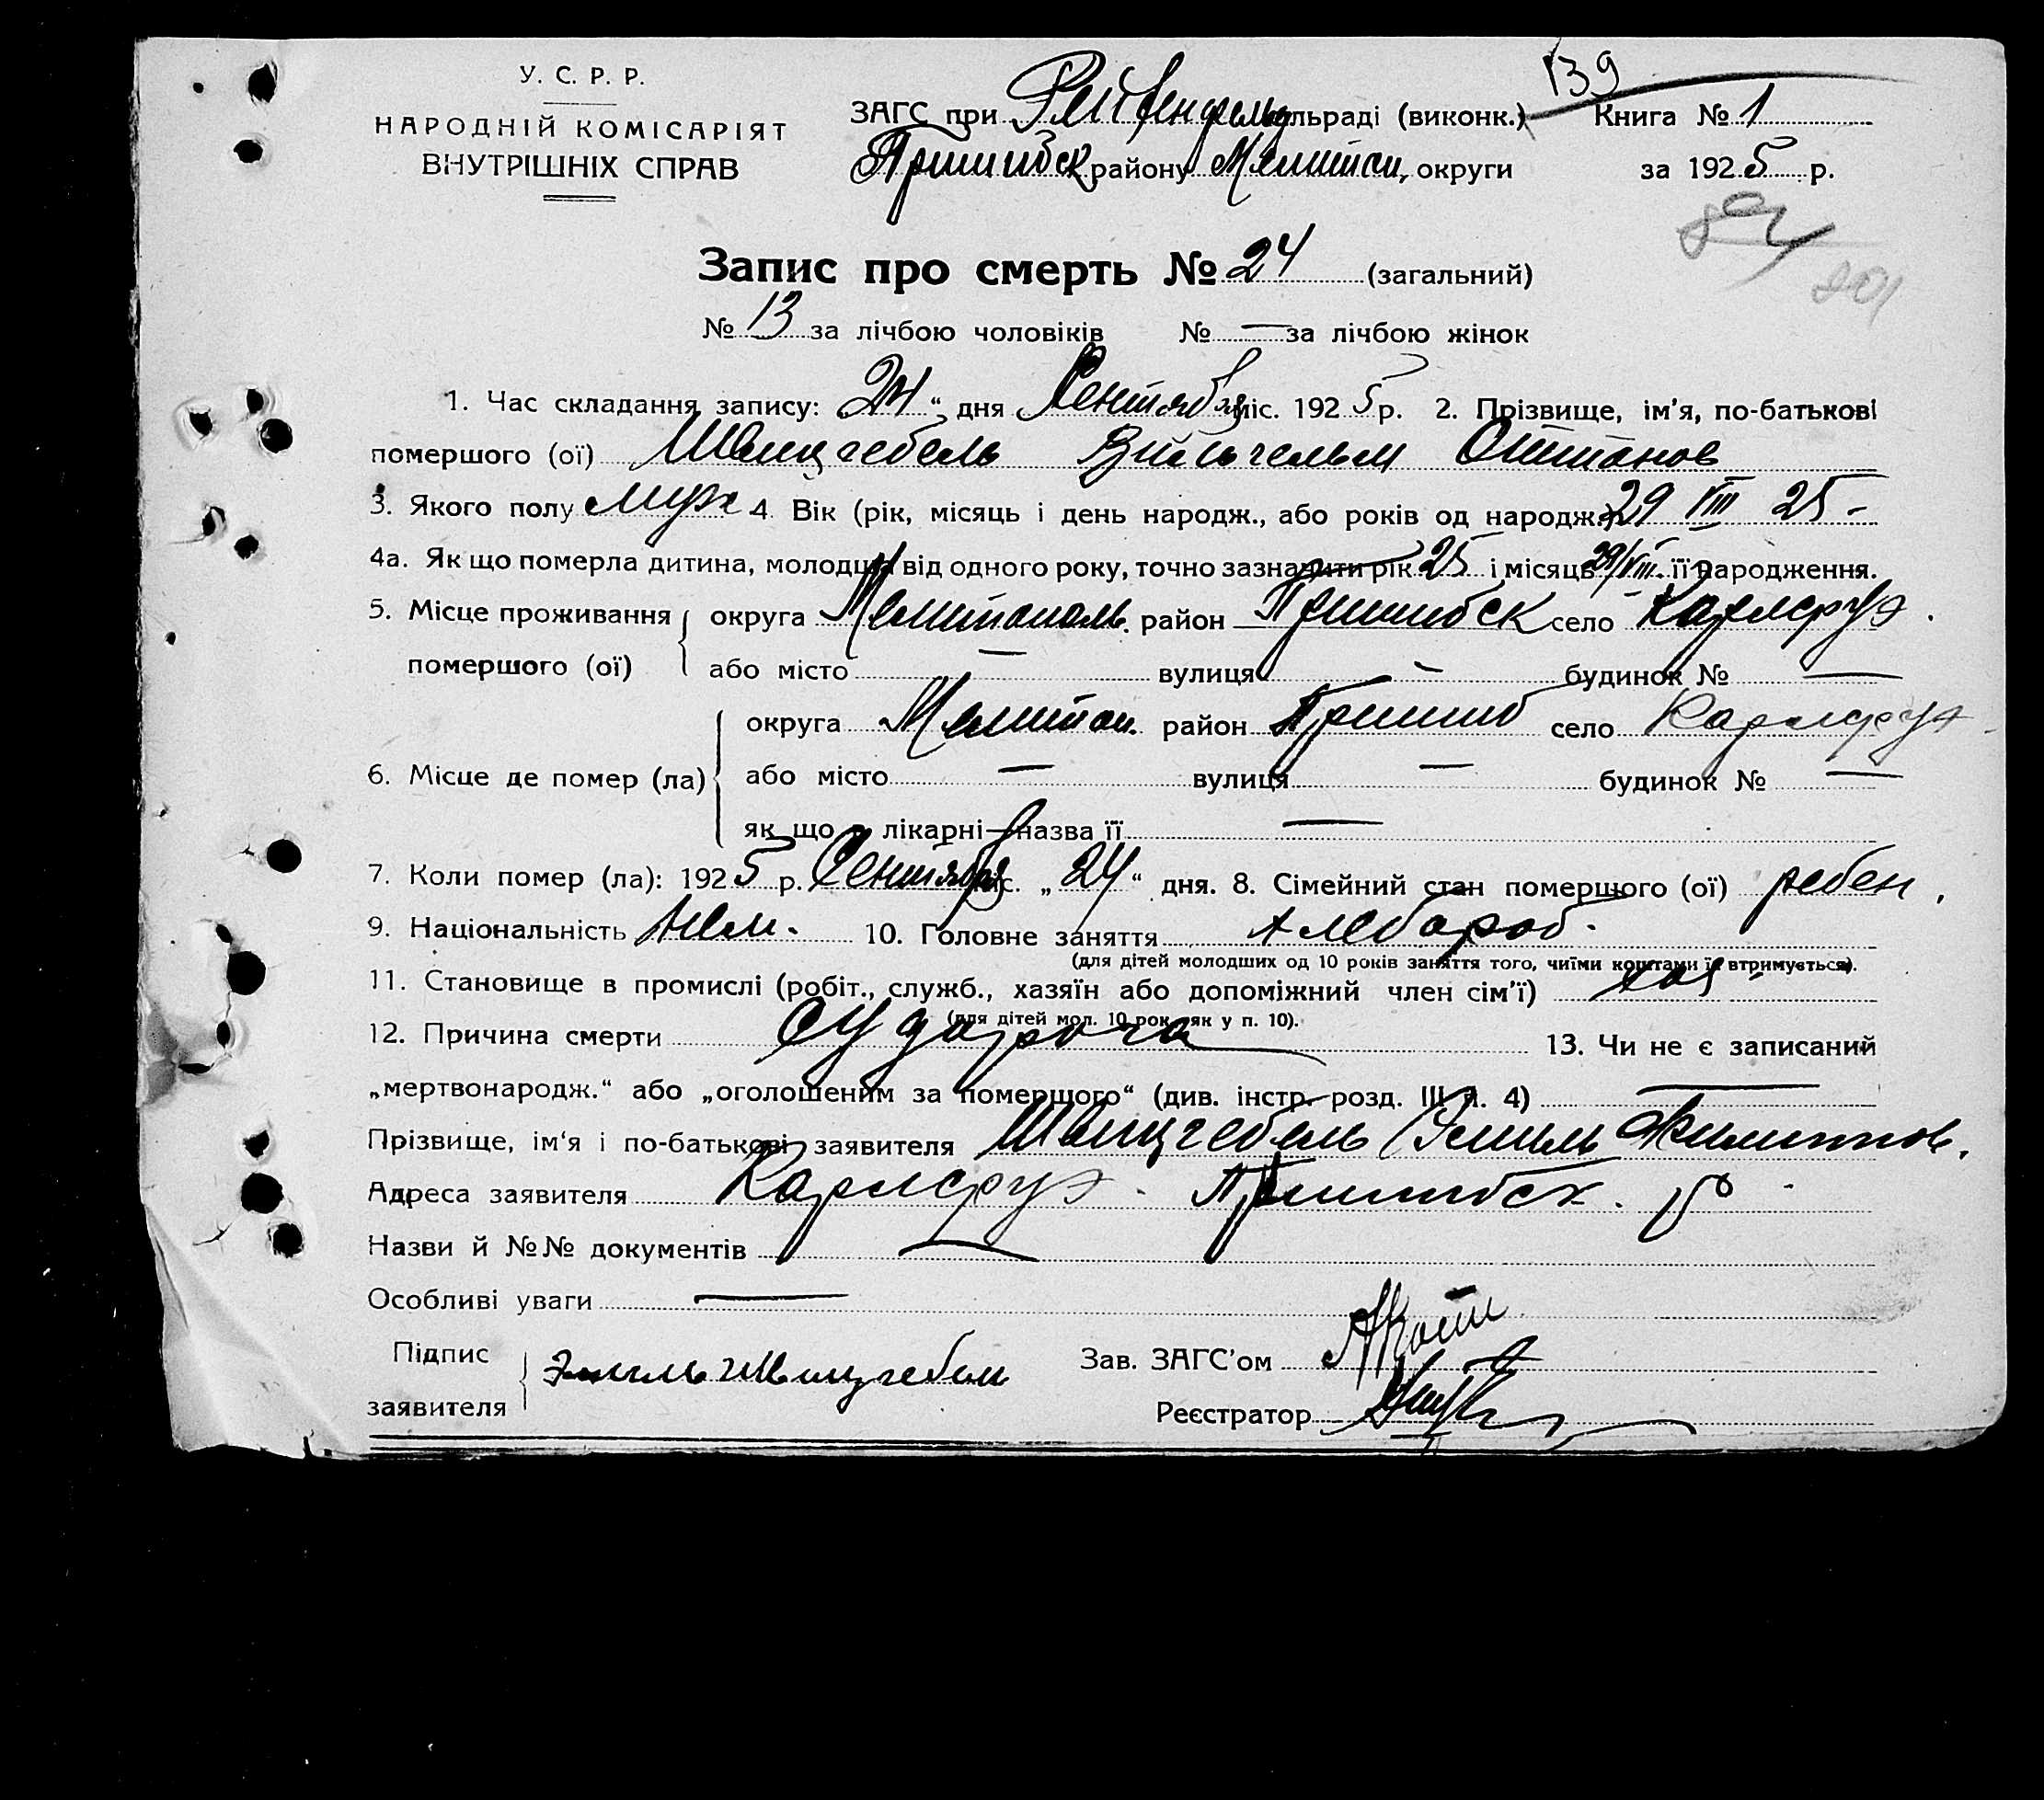 139
У. С. Р. Р.
НАРОДНІЙ КОМІСАРІЯТ
ВНУТРІШНІХ СПРАВ
ЗАГС при Рейхенфельд сільраді (виконк.) Книга № 1
Пришибск району Мелитоп. округи за 1925 р.
Запис про смерть № 24 (загальний)
№ 13 за лічбою чоловіків № — за лічбою жінок
1. Час складання запису: 24 " дня Сентября міс. 1925 р. 2. Прізвище, ім'я, по-батькові
помершого (ої) Швицгебель Вильгельм
3. Якого полу муж 4. Вік (рік, місяць і день народж., або років од народж.) 29 VIII 25 -
4а. Як що померла дитина, молодша від одного року, точно зазначити рік 25 і місяць 29/VIII. її народження.
5. Місце проживання округа Мелитополь. район Пришибск село Карлсруэ.
помершого (ої) або місто — вулиця — будинок № —
округа Мелитоп. район Пришиб село Карлсруэ
6. Місце де помер (ла) або місто — вулиця — будинок № —
як що в лікарні—назва її —
7. Коли помер (ла): 1925 р. Сентября міс. „ 24 " дня. 8. Сімейний стан помершого (ої) ребен.
9. Національність Нем. 10. Головне заняття хлебороб.
(для дітей молодших од 10 років заняття того, чиїми коштами її втримується).
11. Становище в промислі (робіт., служб., хазяїн або допоміжний член сім'ї) хоз -
(для дітей мол. 10 рок. як у п. 10).
12. Причина смерти Судорога 13. Чи не є записаний
„мертвонародж." або „оголошеним за помершого" (див. інстр. розд. III п. 4) —
Прізвище, ім'я і по-батькові заявителя Швицгебель Эмиль Филиппов.
Адреса заявителя Карлсруэ. Пришибск.
Назви й №№ документів —
Особливі уваги —
Підпис
заявителя Эмиль Швицгебель
Зав. ЗАГС'ом
Реєстратор